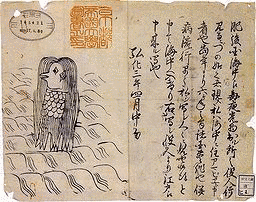 肥後国海中江毎夜光物出ル所之役人行
見るニづの如之者現ス私ハ海中ニ住アマビヱト申
者也当年より六ヶ年之間諸国豊作也併
病流行早々私写シ人々ニ見セ候得と
申て海中へ入けり右ハ写シ役人より江戸江
申来ル写也
弘化三年四月中旬